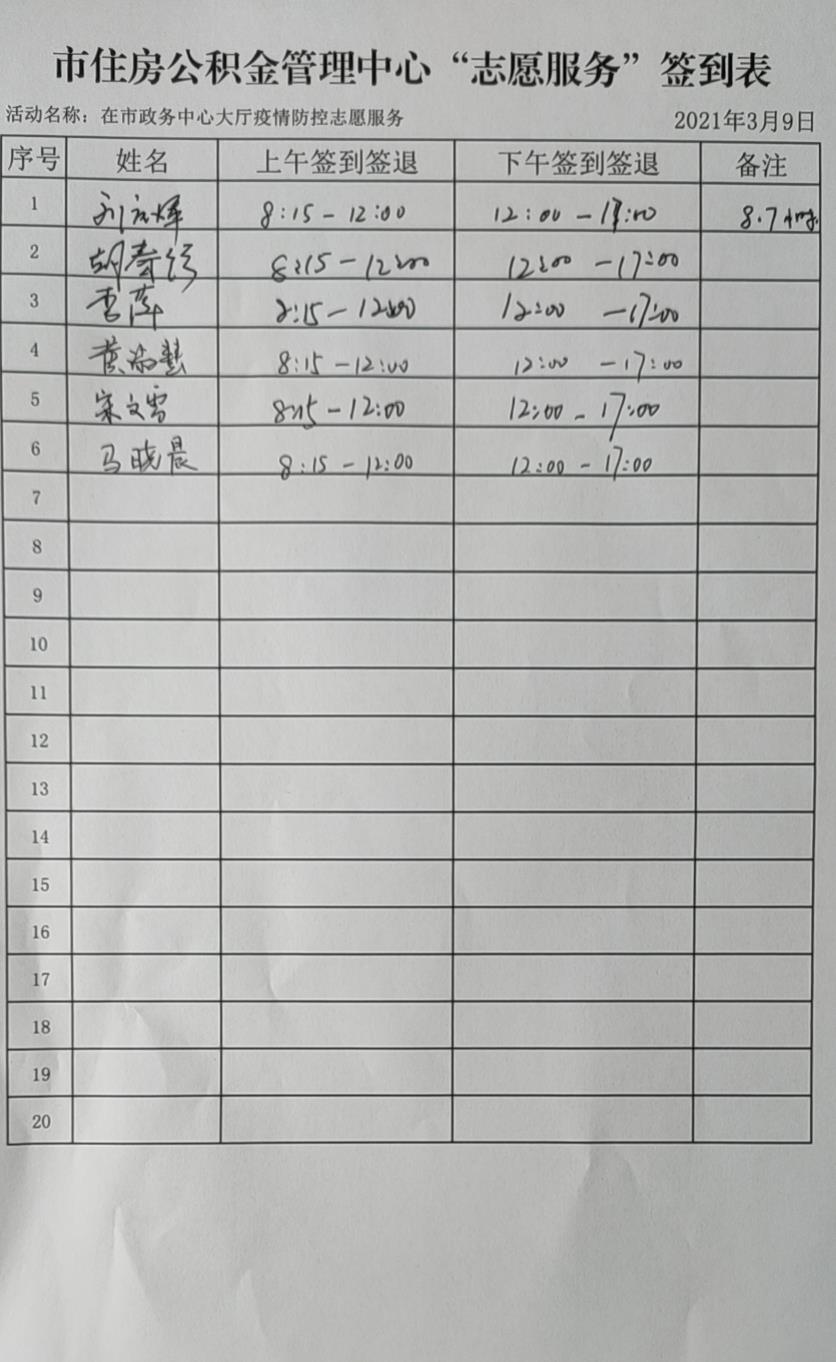 市住房公积金管理中心“志愿服务”签到表
活动名称：在市政务中心大厅疫情防控志愿服务 2021年3月9日
序号 姓名 上午签到签退 下午签到签退 备注
1 8:15-12:00 12:00-17:00 8.7小时
2 8:15-12:00 12:00-17:00
3 雷萍 8:15-12:00 12:00-17:00
4 8:15-12:00 12:00-17:00
5 宋文雪 8:15-12:00 12:00-17:00
6 马晓晨 8:15-12:00 12:00-17:00
7
8
9
10
11
12
13
14
15
16
17
18
19
20